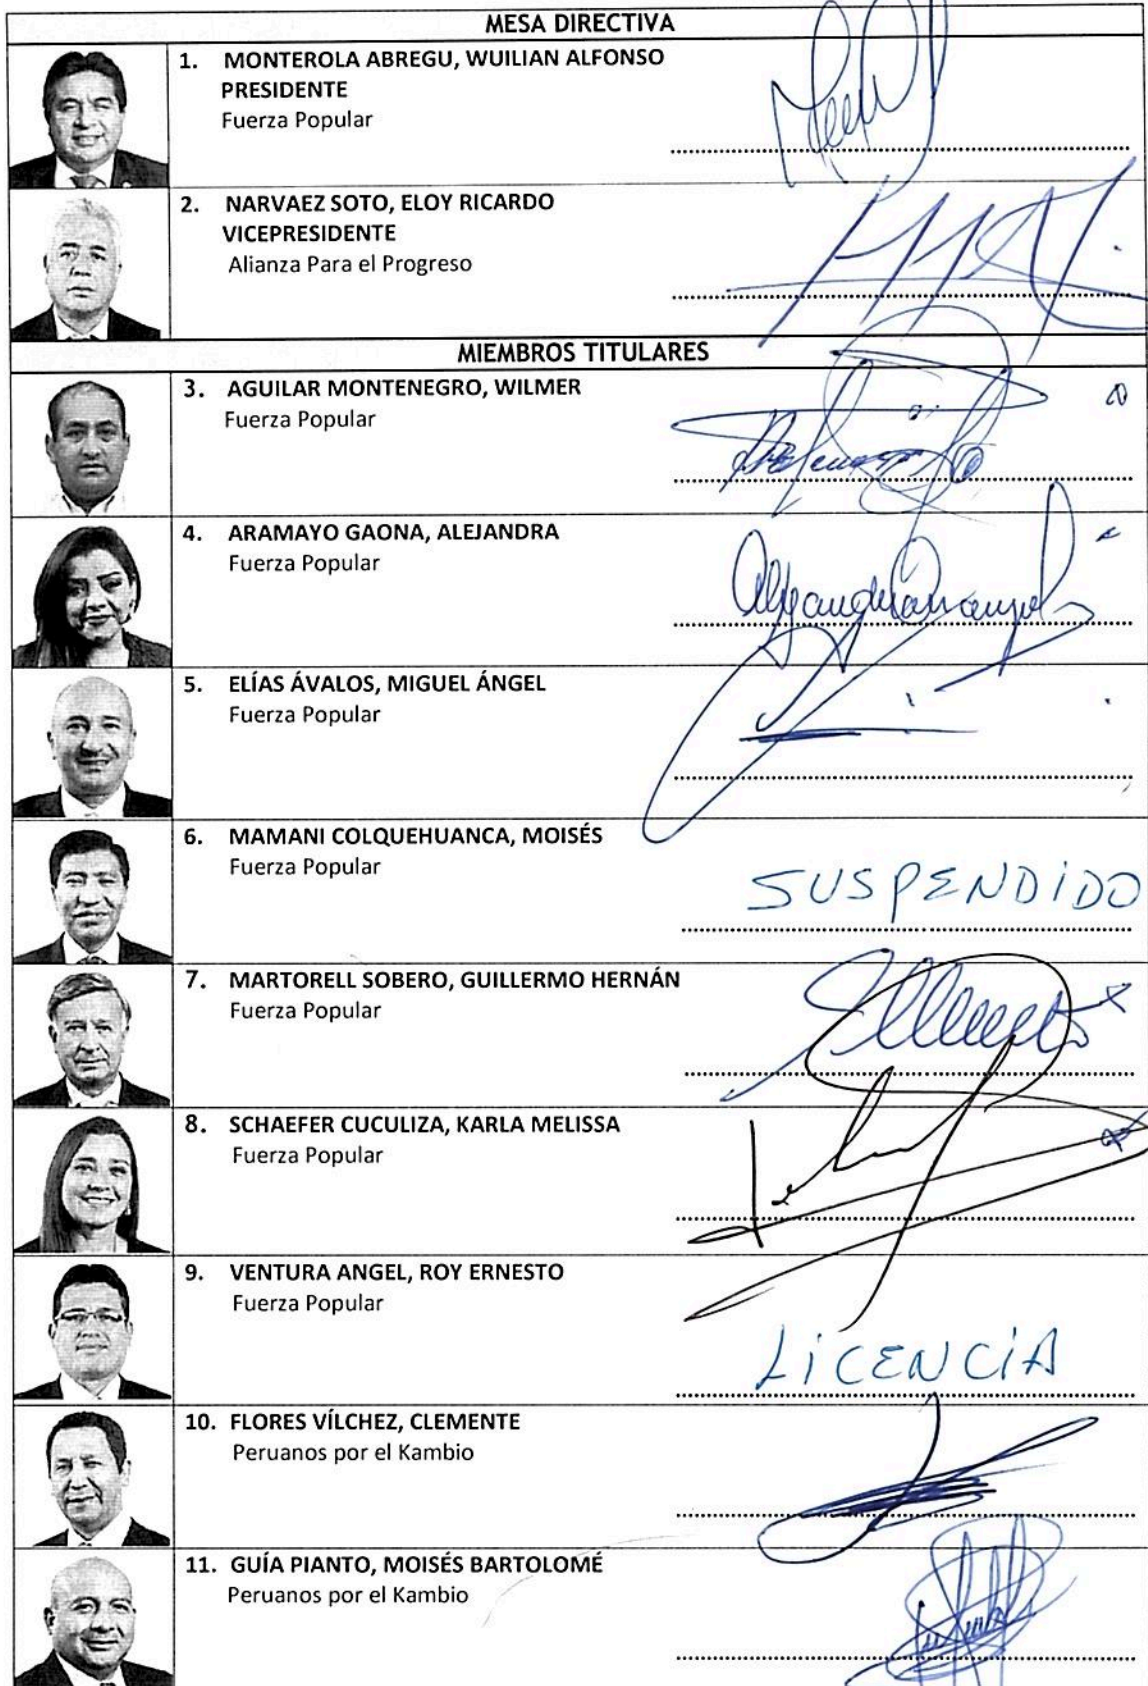 MESA DIRECTIVA
1. MONTEROLA ABREGU, WUILIAN ALFONSO
PRESIDENTE
Fuerza Popular
2. NARVAEZ SOTO, ELOY RICARDO
VICEPRESIDENTE
Alianza Para el Progreso
MIEMBROS TITULARES
3. AGUILAR MONTENEGRO, WILMER
Fuerza Popular
4. ARAMAYO GAONA, ALEJANDRA
Fuerza Popular
5. ELÍAS ÁVALOS, MIGUEL ÁNGEL
Fuerza Popular
6. MAMANI COLQUEHUANCA, MOISÉS
Fuerza Popular
SUSPENDIDO
7. MARTORELL SOBERO, GUILLERMO HERNÁN
Fuerza Popular
8. SCHAEFER CUCULIZA, KARLA MELISSA
Fuerza Popular
9. VENTURA ANGEL, ROY ERNESTO
Fuerza Popular
LICENCIA
10. FLORES VÍLCHEZ, CLEMENTE
Peruanos por el Kambio
11. GUÍA PIANTO, MOISÉS BARTOLOMÉ
Peruanos por el Kambio